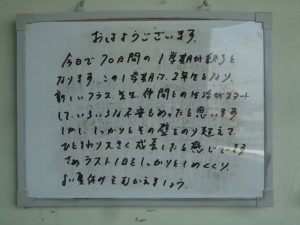 おはようございます。
今日で70日間の1学期が終了と
なります。この1学期は、2年生となり、
新しいクラス、先生、仲間との生活がスタート
して、いろいろな不安もあったと思います。
しかし、しっかりとその壁をのり越えて、
ひとまわり大きく成長したと感じています。
さあラスト1日をしっかりとしめくくり、
よい夏休みをむかえましょう。